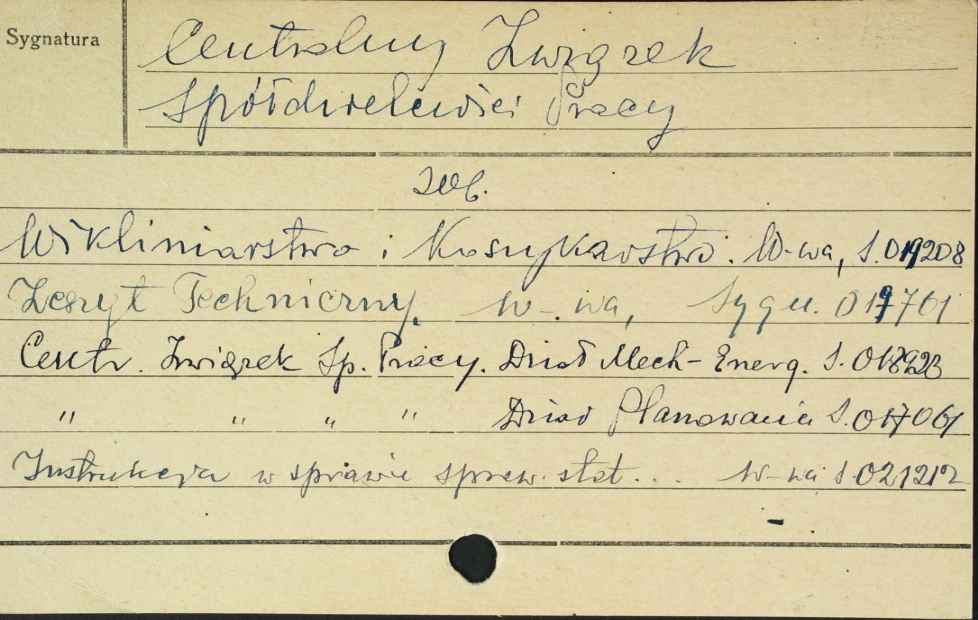 Sygnatura
Centralny Związek
Spółdzielczości Pracy
zob.
Wikliniarstwo i Koszykarstwo. W-wa, S. 019208
Zeszyt Techniczny. W-wa, Sygn. 019761
Centr. Związek Sp. Pracy. Dział Mech-Energ. S.
" " " " Dział Planowania S. 017061
Instrukcja w sprawie spraw. stat... W-wa S. 021212